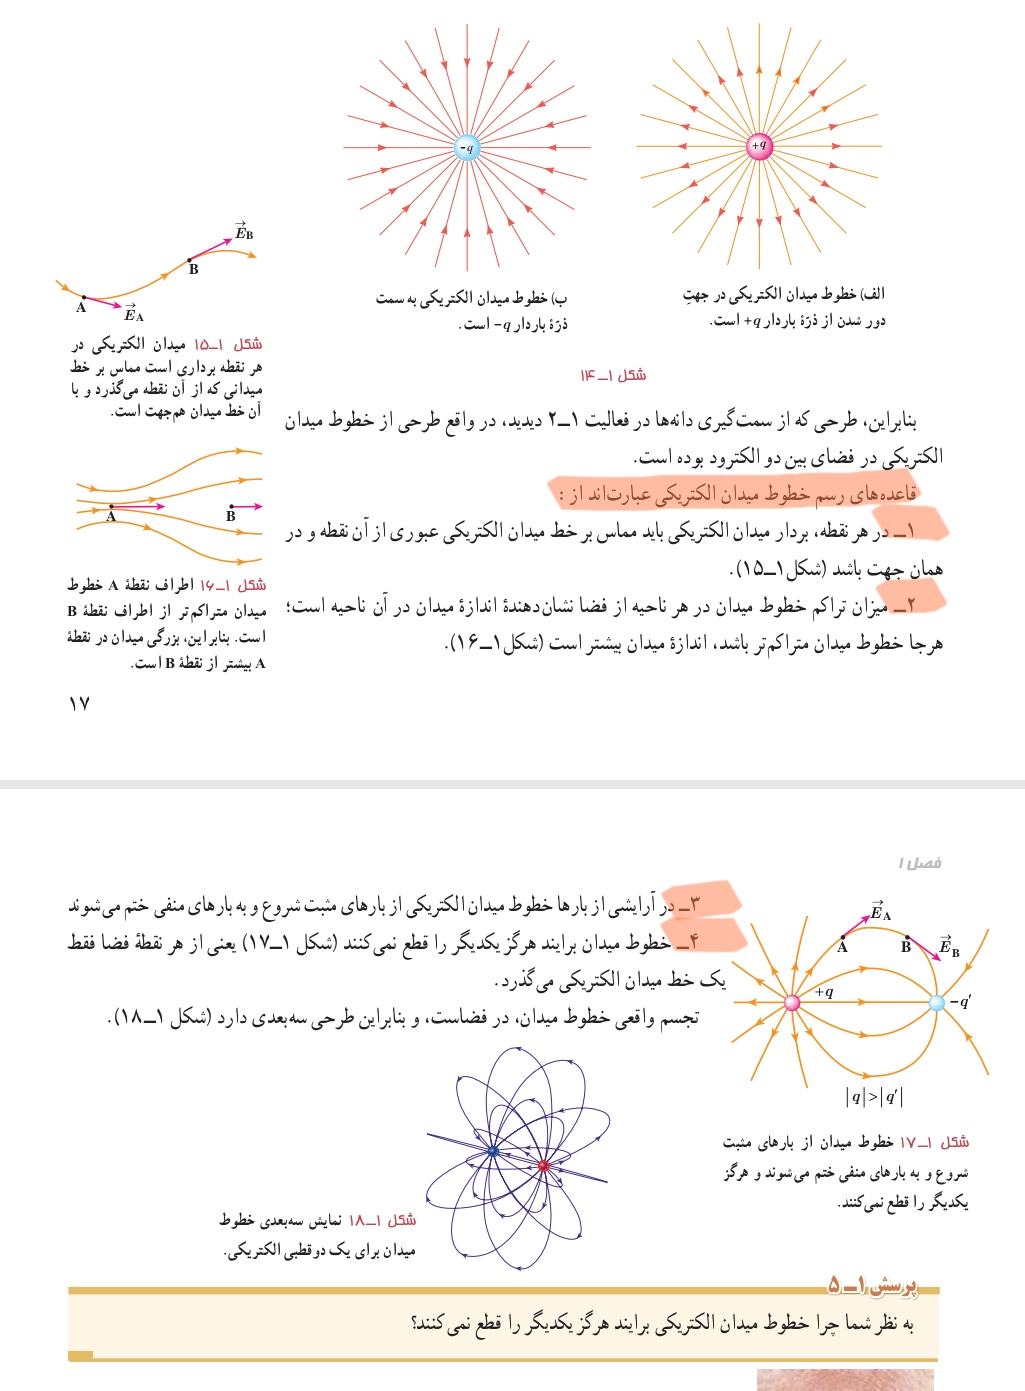 -q
+q
الف) خطوط میدان الکتریکی در جهتِ
دور شدن از ذرهٔ باردار q+ است.
ب) خطوط میدان الکتریکی به سمت
ذرهٔ باردار q− است.
شکل ۱ــ۱۴
E⃗B
B
A
E⃗A
شکل ۱ــ۱۵ میدان الکتریکی در
هر نقطه برداری است مماس بر خط
میدانی که از آن نقطه می‌گذرد و با
آن خط میدان هم‌جهت است.
بنابراین، طرحی که از سمت‌گیری دانه‌ها در فعالیت ۱ــ۲ دیدید، در واقع طرحی از خطوط میدان
الکتریکی در فضای بین دو الکترود بوده است.
قاعده‌های رسم خطوط میدان الکتریکی عبارت‌اند از :
۱ــ در هر نقطه، بردار میدان الکتریکی باید مماس بر خط میدان الکتریکی عبوری از آن نقطه و در
همان جهت باشد (شکل۱ــ۱۵).
۲ــ میزان تراکم خطوط میدان در هر ناحیه از فضا نشان‌دهندهٔ اندازهٔ میدان در آن ناحیه است؛
هرجا خطوط میدان متراکم‌تر باشد، اندازهٔ میدان بیشتر است (شکل۱ــ۱۶).
A
B
شکل ۱ــ۱۶ اطراف نقطهٔ A خطوط
میدان متراکم‌تر از اطراف نقطهٔ B
است. بنابراین، بزرگی میدان در نقطهٔ
A بیشتر از نقطهٔ B است.
۱۷
فصل ۱
۳ــ در آرایشی از بارها خطوط میدان الکتریکی از بارهای مثبت شروع و به بارهای منفی ختم می‌شوند
۴ــ خطوط میدان برایند هرگز یکدیگر را قطع نمی‌کنند (شکل ۱ــ۱۷) یعنی از هر نقطهٔ فضا فقط
یک خط میدان الکتریکی می‌گذرد.
تجسم واقعی خطوط میدان، در فضاست، و بنابراین طرحی سه‌بعدی دارد (شکل ۱ــ۱۸).
E⃗A
A
B
E⃗B
+q
−q′
|q|>|q′|
شکل ۱ــ۱۷ خطوط میدان از بارهای مثبت
شروع و به بارهای منفی ختم می‌شوند و هرگز
یکدیگر را قطع نمی‌کنند.
شکل ۱ــ۱۸ نمایش سه‌بعدی خطوط
میدان برای یک دوقطبی الکتریکی.
پرسش ۱ــ۵
به نظر شما چرا خطوط میدان الکتریکی برایند هرگز یکدیگر را قطع نمی‌کنند؟